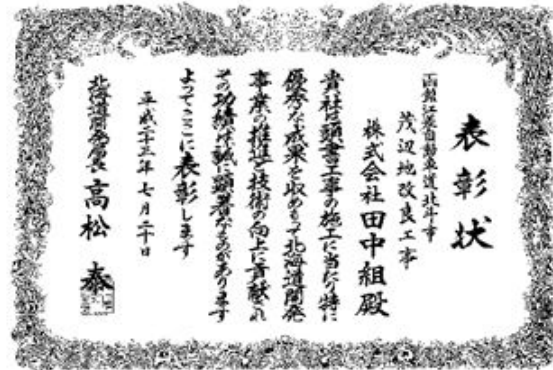 表彰状
函館江差自動車道北斗市
茂辺地改良工事
株式会社田中組殿
貴社は頭書工事の施工に当たり特に
優秀な成果を収めもって北海道開発
事業の推進と技術の向上に貢献され
その功績は誠に顕著なものがあります
よってここに表彰します
平成二十三年七月二十日
北海道開発局長高松泰